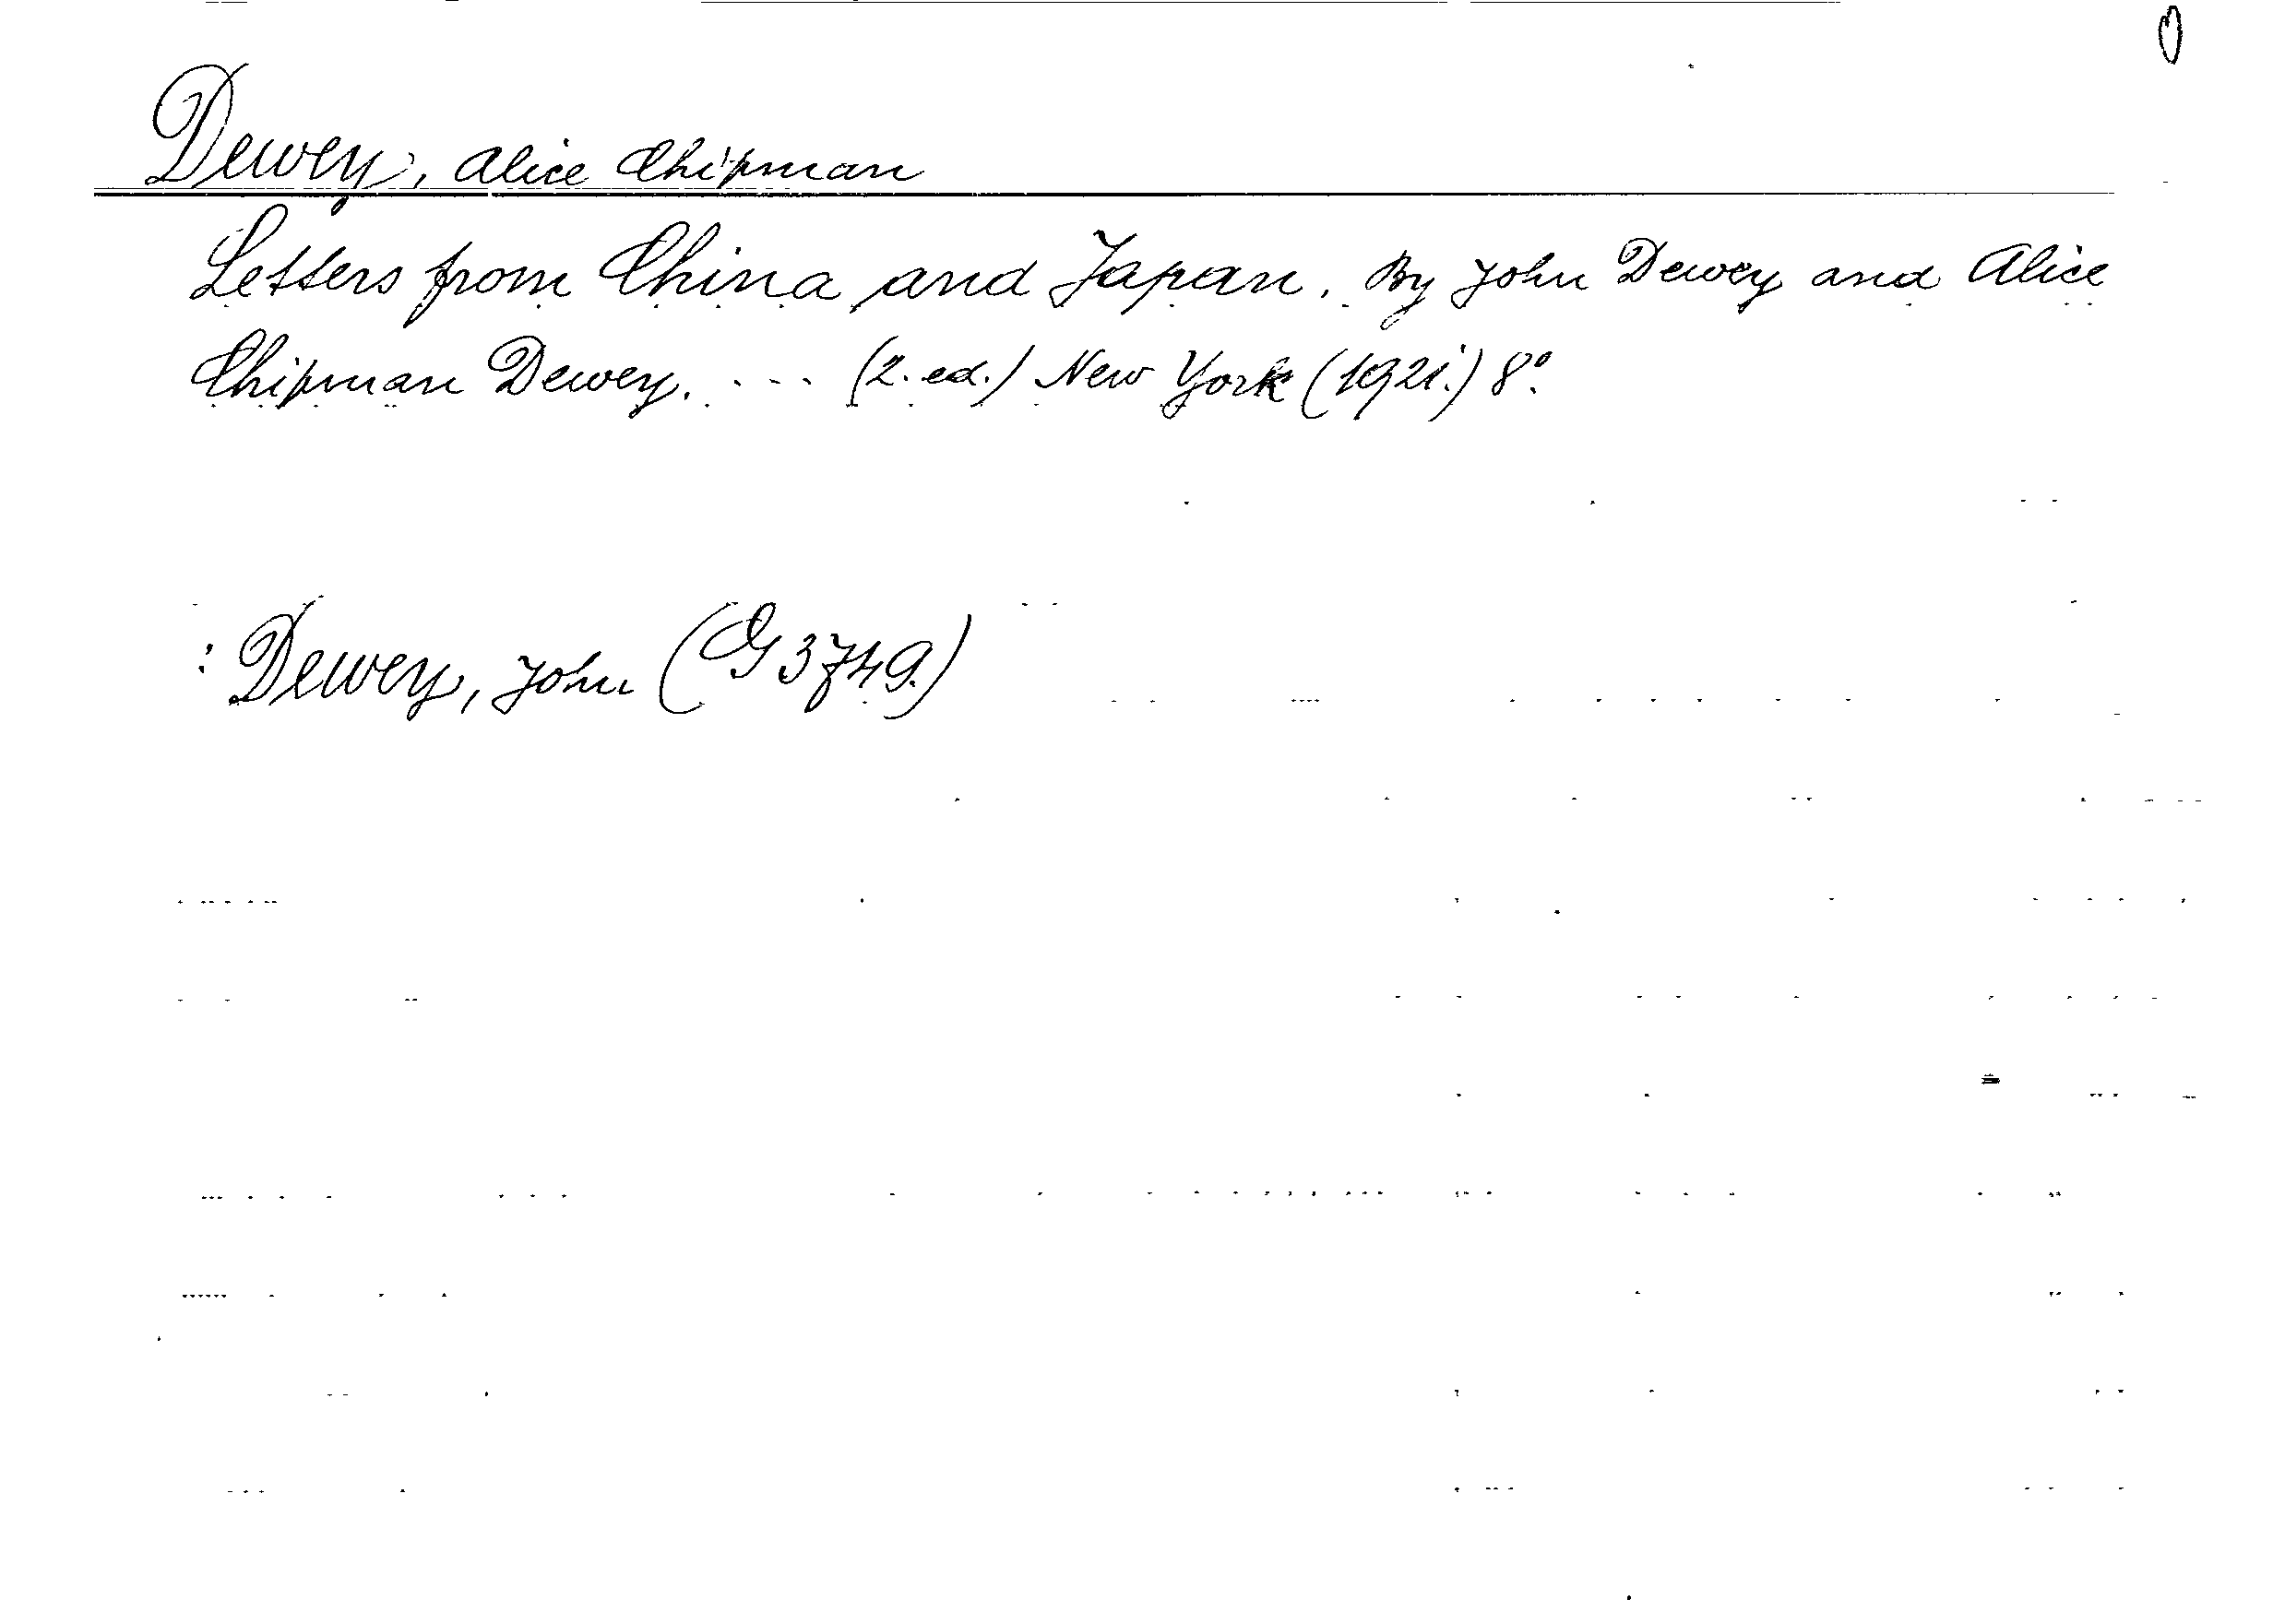 Dewey, Alice Chipman
Letters from China and Japan. By John Dewey and Alice
Chipman Dewey. ... (2. ed.) New York (1921.) 8°.
: Dewey, John (G 3749.)